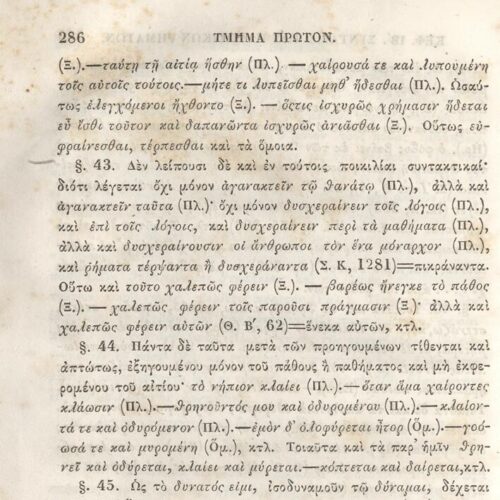 286 ΤΜΗΜΑ ΠΡΩΤΟΝ.
(Ξ.).—ταύτῃ τῇ αἰτίᾳ ἥσθην (Πλ.) — χαίρουσά τε καὶ λυπουμένη
τοῖς αὐτοῖς τούτοις.—μήτε τι λυπεῖσθαι μηθ' ἥδεσθαι (Πλ.). Ὡσαύ-
τως ἐλεγχόμενοι ἤχθοντο (Ξ.). — ὅςτις ἰσχυρῶς χρήμασιν ἥδεται
εὖ ἴσθι τοῦτον καὶ δαπανῶντα ἰσχυρῶς ἀνιᾶσθαι (Ξ.). Οὕτως εὐ-
φραίνεσθαι, τέρπεσθαι καὶ τὰ ὅμοια.
§. 43. Δὲν λείπουσι δὲ καὶ ἐν τούτοις ποικιλίαι συντακτικαί·
διότι λέγεται ὄχι μόνον ἀγανακτεῖν τῷ θανάτῳ (Πλ.), ἀλλὰ καὶ
ἀγανακτεῖν ταῦτα (Πλ.)· ὄχι μόνον δυσχεραίνειν τοῖς λόγοις (Πλ.),
καὶ ἐπὶ τοῖς λόγοις, καὶ δυσχεραίνειν περὶ τὰ μαθήματα (Πλ.),
ἀλλὰ καὶ δυσχεραίνουσιν οἱ ἄνθρωποι τὸν ἕνα μόναρχον (Πλ.),
καὶ ῥήματα τέρψαντα ἢ δυσχεράναντα (Σ. Κ, 1281)=πικράναντα.
Οὕτω καὶ τοῦτο χαλεπῶς φέρειν (Ξ.). — βαρέως ἤνεγκε τὸ πάθος
(Ξ.). — χαλεπῶς φέρειν τοῖς παροῦσι πράγμασιν (Ξ)· ἀλλὰ καὶ
χαλεπῶς φέρειν αὐτῶν (Θ. Β', 62)=ἕνεκα αὐτῶν, κτλ.
§. 44. Πάντα δὲ ταῦτα μετὰ τῶν προηγουμένων τίθενται καὶ
ἀπτώτως, ἐξηγουμένου μόνον τοῦ πάθους ἢ παθήματος καὶ μὴ ἐκφε-
ρομένου τοῦ αἰτίου· τὸ νήπιον κλαίει (Πλ.).—ὅταν ἅμα χαίροντες
κλάωσιν (Πλ.).—θρηνοῦντός μου καὶ ὀδυρομένου (Πλ.).—κλαίον-
τά τε καὶ ὀδυρόμενον (Πλ.).—ἐμὸν δ' ὀλοφύρεται ἦτορ (Ὅμ.).—γοό-
ωσά τε καὶ μυρομένη (Ὅμ.), κτλ. Τοιαῦτα καὶ τὰ παρ' ἡμῖν θρη-
νεῖ καὶ ὀδύρεται, κλαίει καὶ μύρεται.—κόπτεται καὶ δαίρεται,κτλ.
§. 45. Ὡς τὸ δυνατός εἰμι, ἰσοδυναμοῦν τῷ δύναμαι, δέχεται